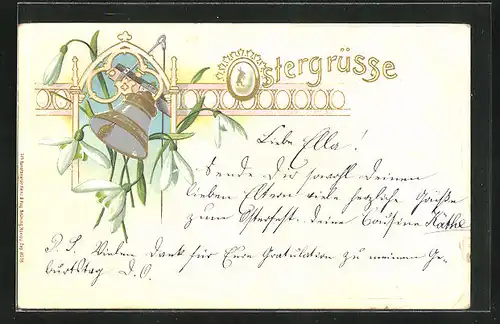 Ostergrüsse
Liebe Ella!
Sende Dir sowohl Deinen
lieben Eltern viele herzliche Grüße
zum Osterfest. Deine Cousine Käthe
P.S. Vielen Dank für Eure Gratulation zu meinem Ge-
burtstag D.O.